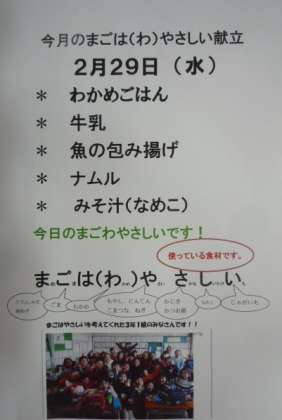 今月のまごは(わ)やさしい献立
2月29日 (水)
＊ わかめごはん
＊ 牛乳
＊ 魚の包み揚げ
＊ ナムル
＊ みそ汁(なめこ)
今日のまごわやさしいです！
使っている食材です。
まごは(わ)や さ し い
ごま わかめ もやし、にんじん じゃがいも
こまつな、ねぎ
まごはやさしいを考えてくれた3年1組のみなさんです！！